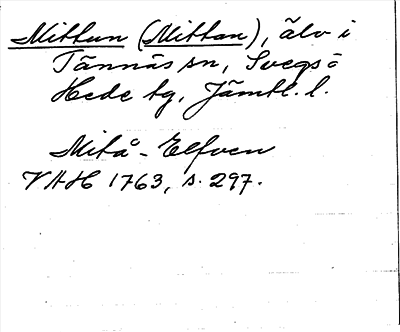 Mittun (Mittan), älv i
Tännäs sn, Svegs o
Hede tg, Jämtl. l.
Mitå-Elfven
VAH 1763, s. 297.